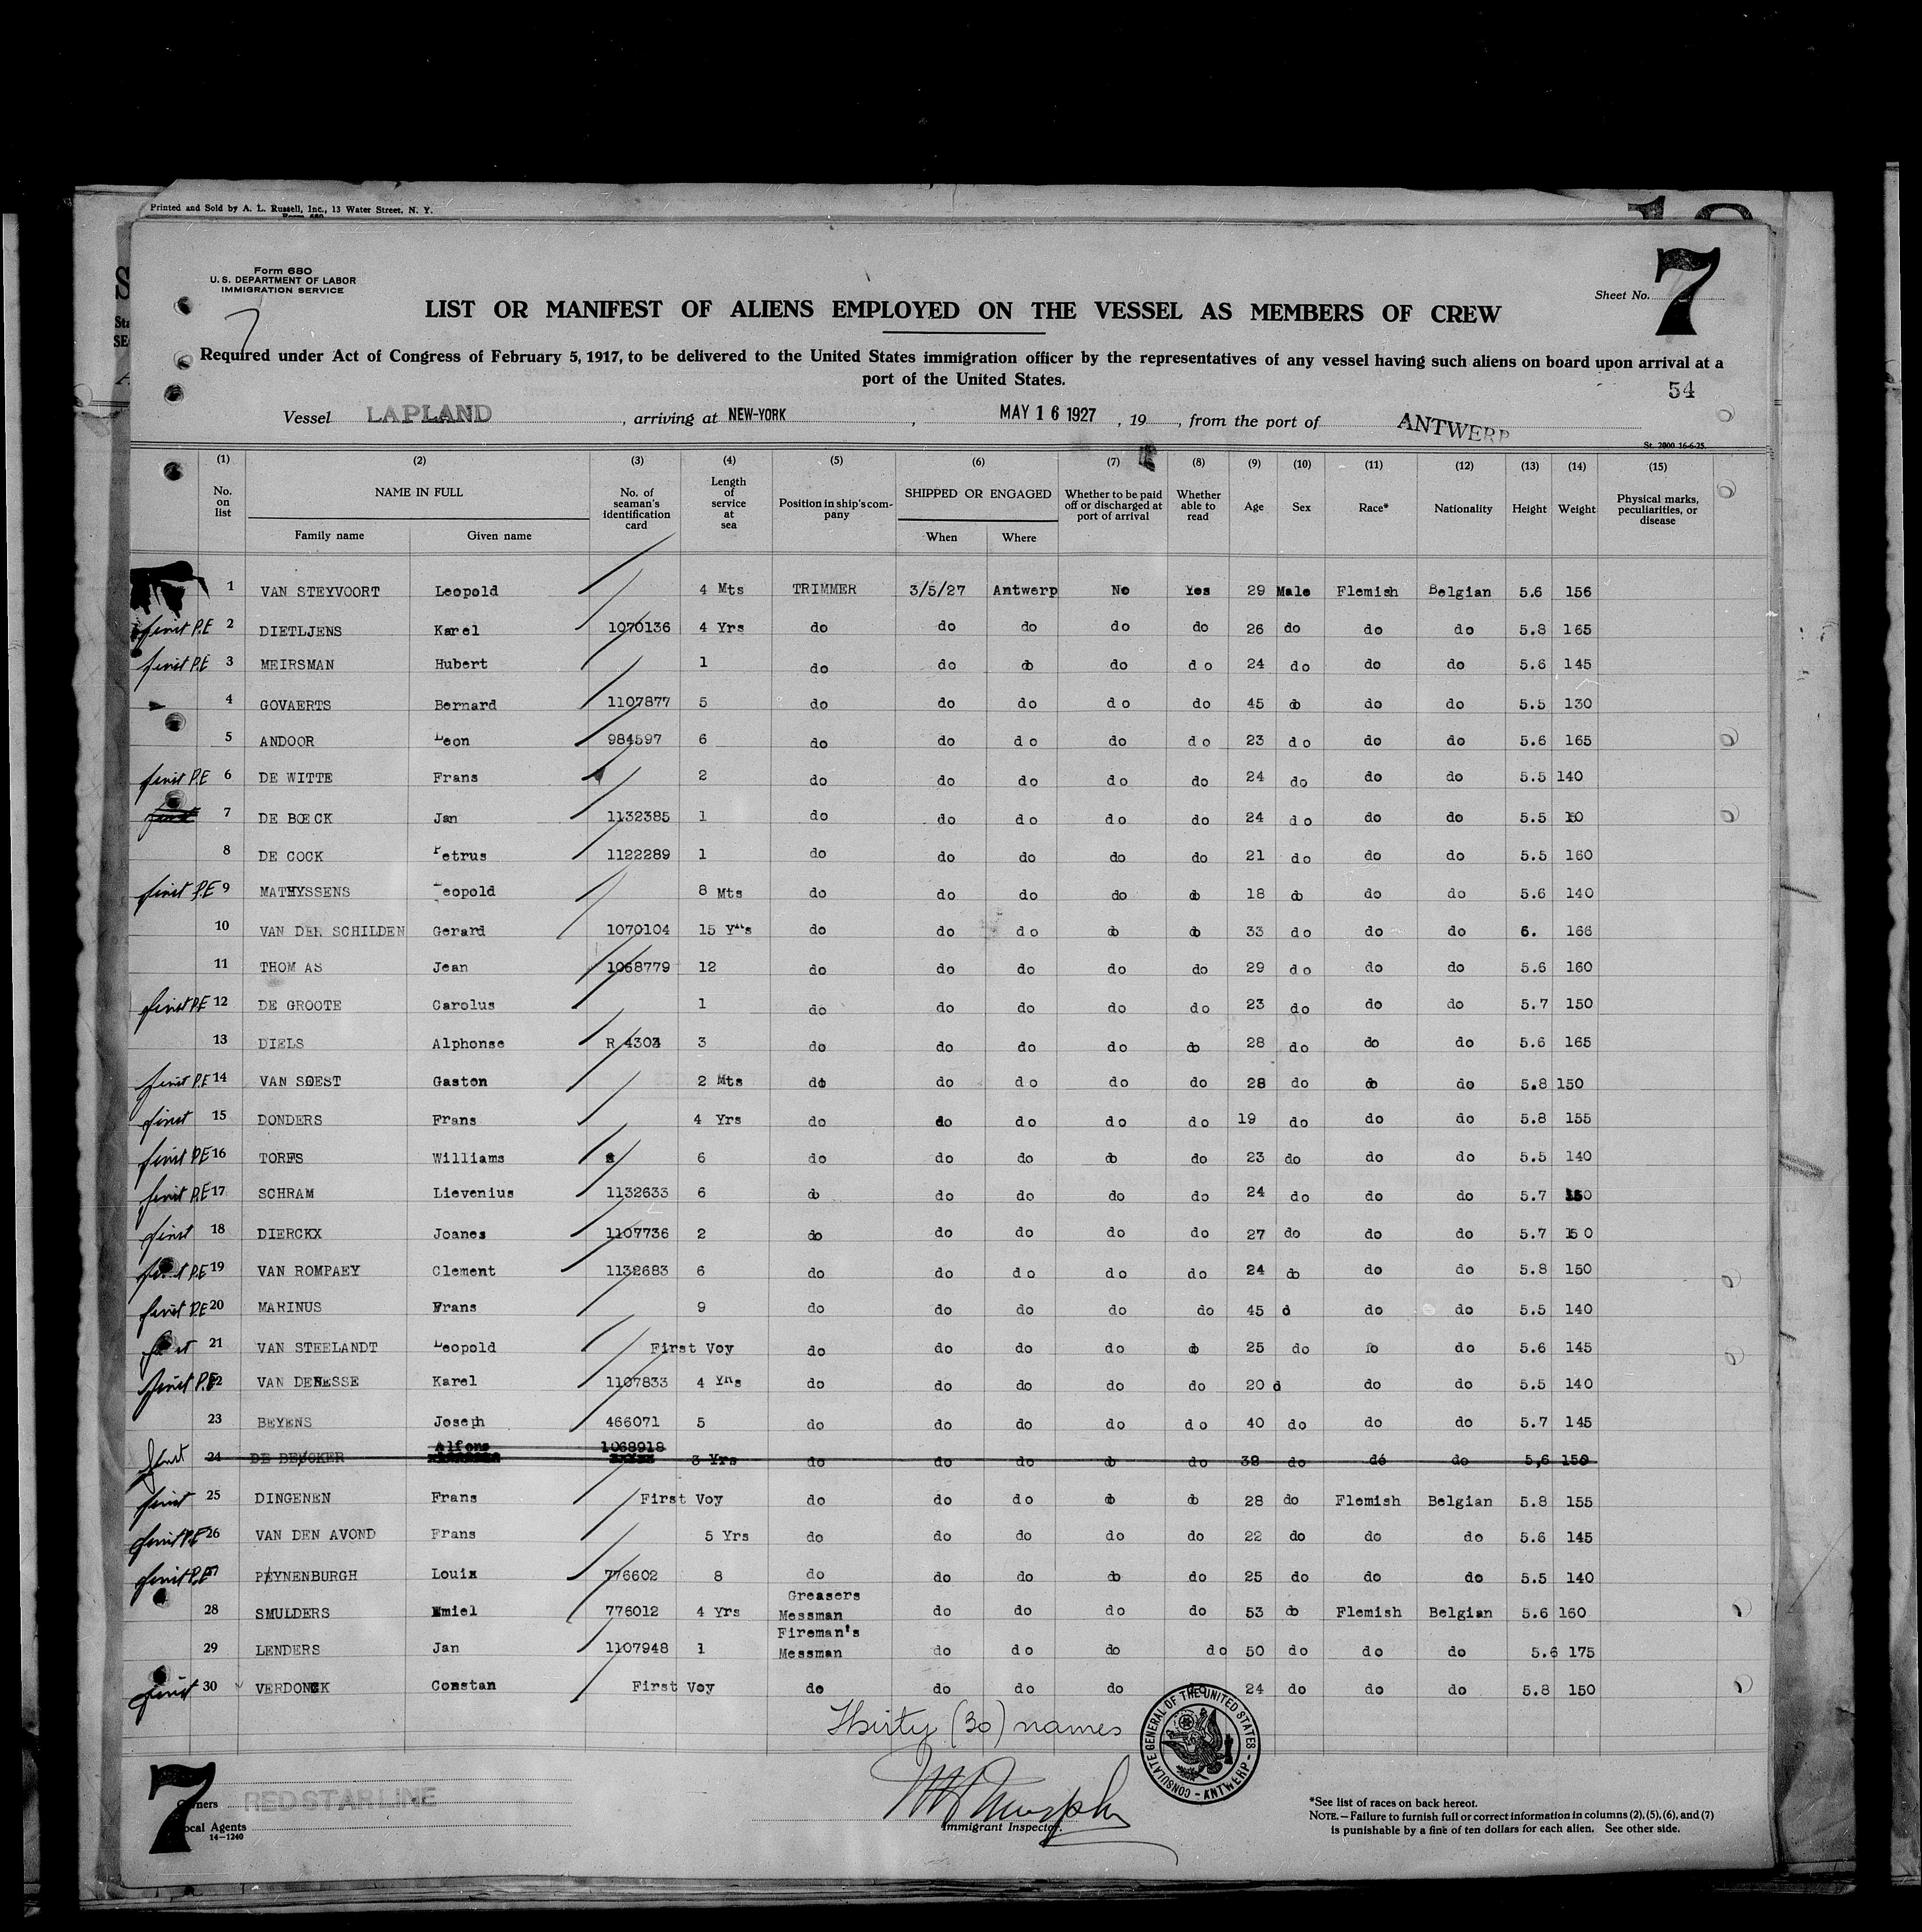 Printed and Sold by A. L. Russell, Inc., 13 Water Street, N. Y.
Form 680
U. S. DEPARTMENT OF LABOR
IMMIGRATION SERVICE
7
Sheet No. 7
LIST OR MANIFEST OF ALIENS EMPLOYED ON THE VESSEL AS MEMBERS OF CREW
Required under Act of Congress of February 5, 1917, to be delivered to the United States immigration officer by the representatives of any vessel having such aliens on board upon arrival at a
port of the United States.
54
Vessel LAPLAND, arriving at NEW-YORK, MAY 16 1927, 19, from the port of ANTWERP
St. 2000 16-6-25.
(1) (2) (3) (4) (5) (6) (7) (8) (9) (10) (11) (12) (13) (14) (15)
No. on list NAME IN FULL Family name Given name No. of seaman's identification card Length of service at sea Position in ship's company SHIPPED OR ENGAGED When Where Whether to be paid off or discharged at port of arrival Whether able to read Age Sex Race* Nationality Height Weight Physical marks, peculiarities, or disease
1 VAN STEYVOORT Leopold 4 Mts TRIMMER 3/5/27 Antwerp No Yes 29 Male Flemish Belgian 5.6 156
first P.E 2 DIETLJENS Karel 1070136 4 Yrs do do do do do 26 do do do 5.8 165
first P.E 3 MEIRSMAN Hubert 1 do do do do do 24 do do do 5.6 145
4 GOVAERTS Bernard 1107877 5 do do do do do 45 do do do 5.5 130
5 ANDOOR Leon 984597 6 do do do do do 23 do do do 5.6 165
first P.E 6 DE WITTE Frans 2 do do do do do 24 do do do 5.5 140
first 7 DE BOECK Jan 1132385 1 do do do do do 24 do do do 5.5
8 DE COCK Petrus 1122289 1 do do do do do 21 do do do 5.5 160
first P.E 9 MATHYSSENS Leopold 8 Mts do do do do do 18 do do do 5.6 140
10 VAN DER SCHILDEN Gerard 1070104 15 Yrs do do do do do 33 do do do 6. 166
11 THOMAS Jean 1068779 12 do do do do do 29 do do do 5.6 160
first P.E 12 DE GROOTE Carolus 1 do do do do do 23 do do do 5.7 150
13 DIELS Alphonse R 4303 3 do do do do do 28 do do do 5.6 165
first P.E 14 VAN SOEST Gaston 2 Mts do do do do do 28 do do do 5.8 150
first 15 DONDERS Frans 4 Yrs do do do do do 19 do do do 5.8 155
first P.E 16 TORFS Williams 6 do do do do do 23 do do do 5.5 140
first P.E 17 SCHRAM Lievenius 1132633 6 do do do do do 24 do do do 5.7 150
first 18 DIERCKX Joanes 1107736 2 do do do do do 27 do do do 5.7 150
first P.E 19 VAN ROMPAEY Clement 1132683 6 do do do do do 24 do do do 5.8 150
first P.E 20 MARINUS Frans 9 do do do do do 45 d do do 5.5 140
first 21 VAN STEELANDT Leopold First Voy do do do do do 25 do do do 5.6 145
first P.E 22 VAN DENESSE Karel 1107833 4 Yrs do do do do do 20 d do do 5.5 140
23 BEYENS Joseph 466071 5 do do do do do 40 do do do 5.7 145
first 24 DE BEUCKER Alfons 1068918 3 Yrs do do do do do 38 do do do 5,6 150
first 25 DINGENEN Frans First Voy do do do do do 28 do Flemish Belgian 5.8 155
first P.E 26 VAN DEN AVOND Frans 5 Yrs do do do do do 22 do do do 5.6 145
first P.E 27 PEYNENBURGH Louis 776602 8 do do do do do 25 do do do 5.5 140
28 SMULDERS Emiel 776012 4 Yrs Greasers Messman do do do do 53 do Flemish Belgian 5.6 160
29 LENDERS Jan 1107948 1 Fireman's Messman do do do do 50 do do do 5.6 175
first 30 VERDONCK Constan First Voy do do do do do 24 do do do 5.8 150
Thirty (30) names
CONSULATE GENERAL OF THE UNITED STATES - ANTWERP -
7
Owners RED STAR LINE
Local Agents
14-1240
Immigrant Inspector.
*See list of races on back hereof.
NOTE.—Failure to furnish full or correct information in columns (2), (5), (6), and (7)
is punishable by a fine of ten dollars for each alien. See other side.